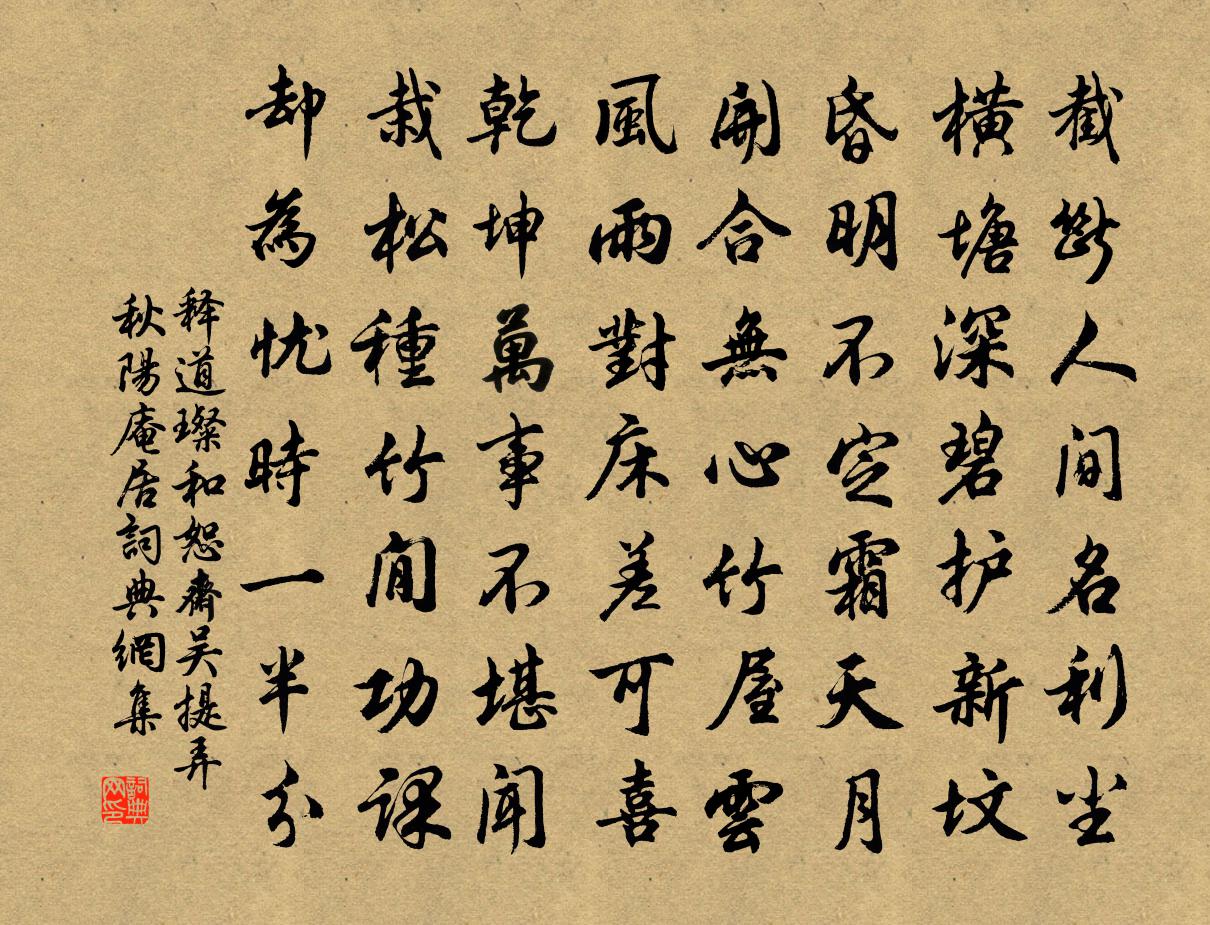 截斷人间名利尘
橫塘深碧护新坟
昏明不定霜天月
開合無心竹屋雲
風雨對床差可喜
乾坤萬事不堪聞
栽松種竹閒功課
却為忧時一半分
释道璨和恕齋吴提弄
秋陽庵居詞典網集
詞典网印